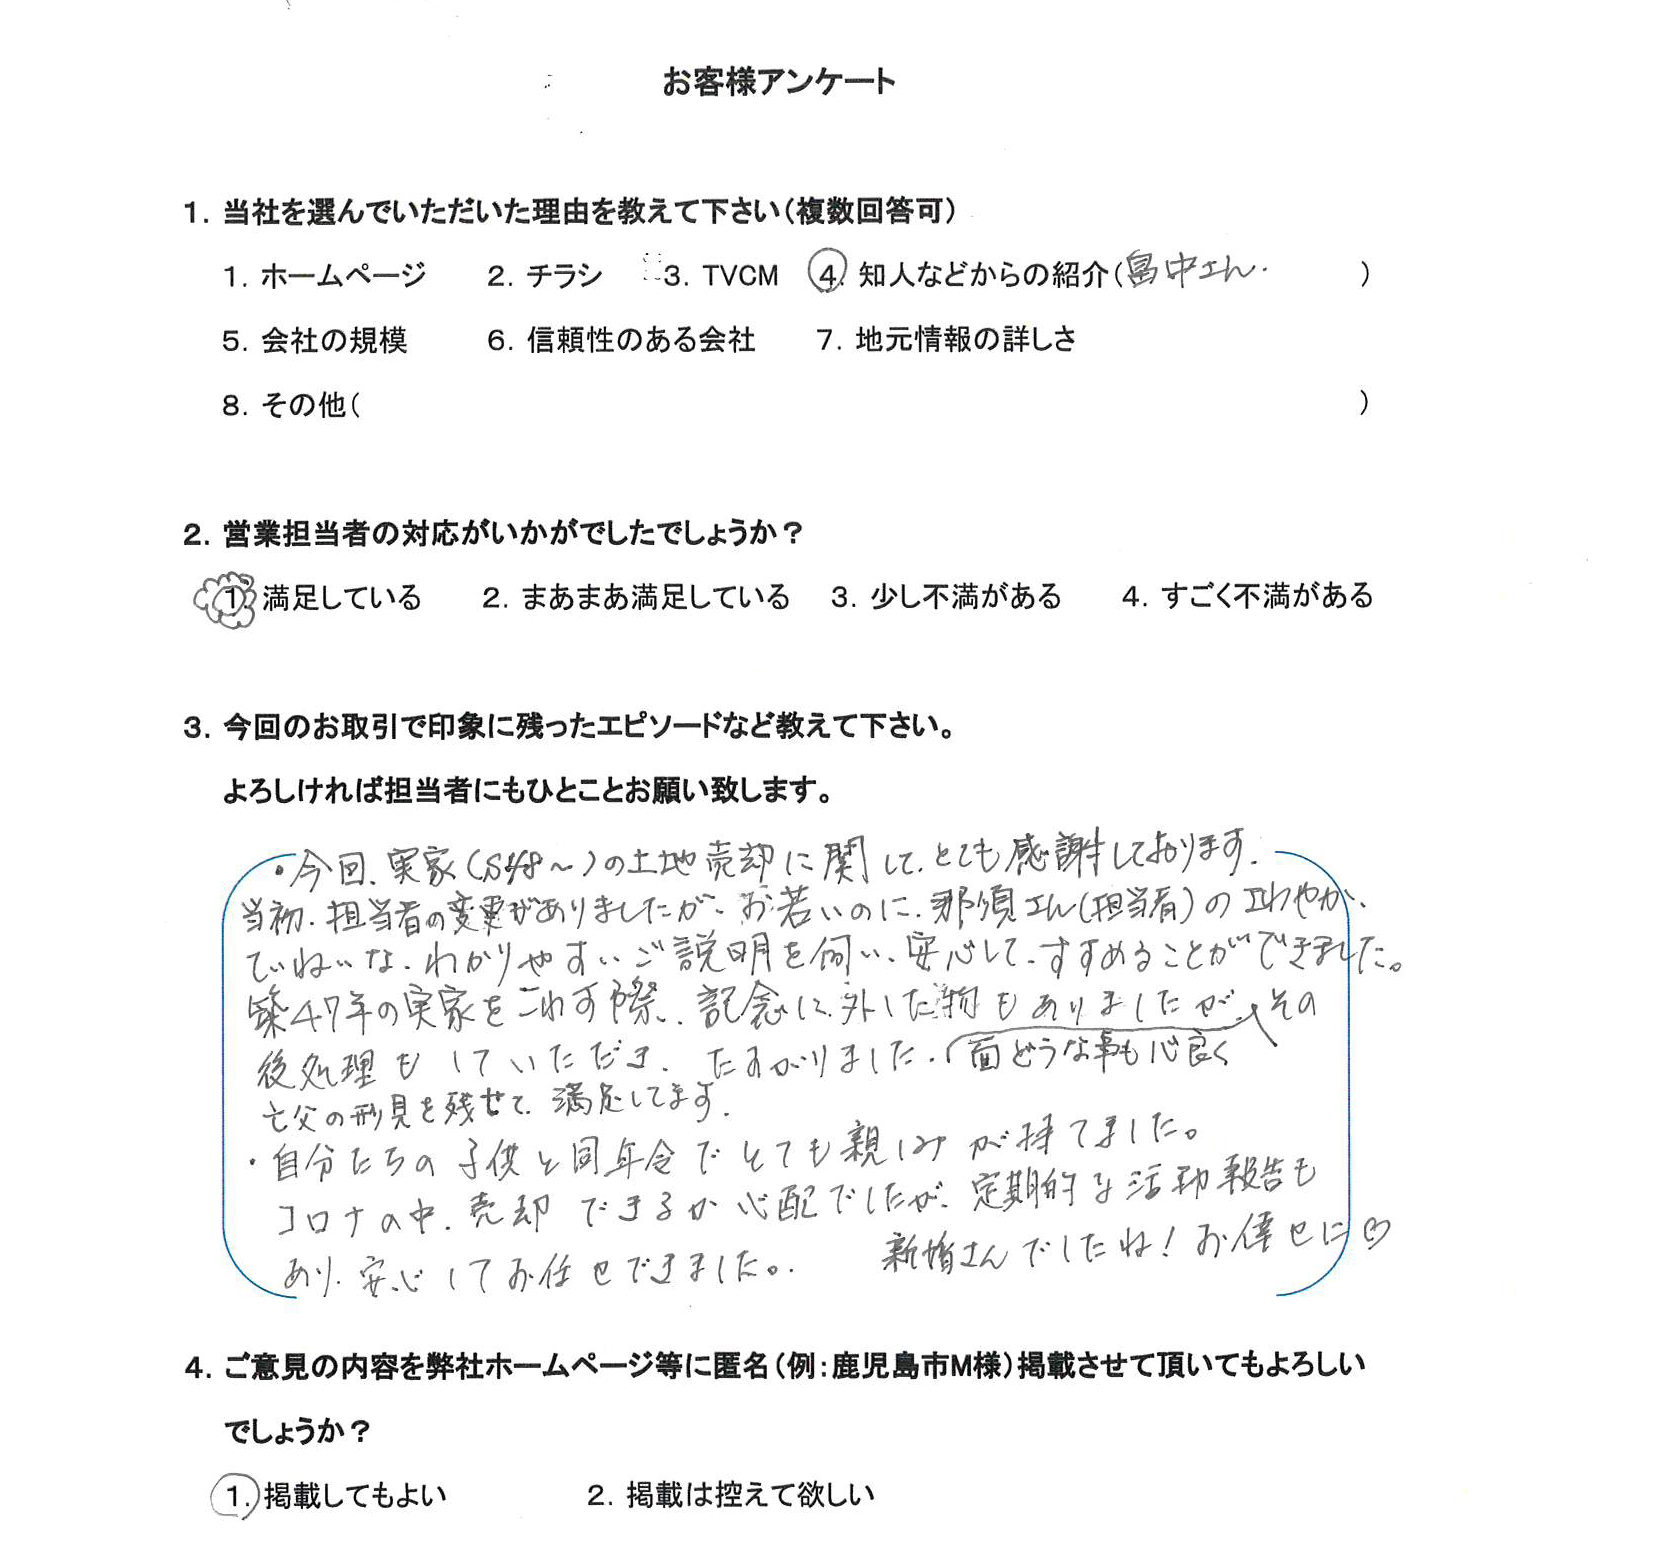 お客様アンケート
1. 当社を選んでいただいた理由を教えて下さい(複数回答可)
1. ホームページ 2. チラシ 3. TVCM 4. 知人などからの紹介(畠中さん. )
5. 会社の規模 6. 信頼性のある会社 7. 地元情報の詳しさ
8. その他( )
2. 営業担当者の対応がいかがでしたでしょうか?
1. 満足している 2. まあまあ満足している 3. 少し不満がある 4. すごく不満がある
3. 今回のお取引で印象に残ったエピソードなど教えて下さい。
よろしければ担当者にもひとことお願い致します。
・今回、実家(S48〜)の土地売却に関して、とても感謝しております.
当初、担当者の変更がありましたが、お若いのに、那須さん(担当者)のさわやか、
ていねいな、わかりやすいご説明を伺い、安心して、すすめることができました。
築47年の実家をこわす際、記念に、外した物もありましたが、その
後処理もしていただき、たすかりました. 面どうな事も心良く
亡父の形見を残せて、満足してます.
・自分たちの子供と同年令でとても親しみが持てました。
コロナの中、売却できるか心配でしたが、定期的な活動報告も
あり、安心してお任せできました。. 新婚さんでしたね!お倖せに♡
4. ご意見の内容を弊社ホームページ等に匿名(例:鹿児島市M様)掲載させて頂いてもよろしい
でしょうか?
1. 掲載してもよい 2. 掲載は控えて欲しい